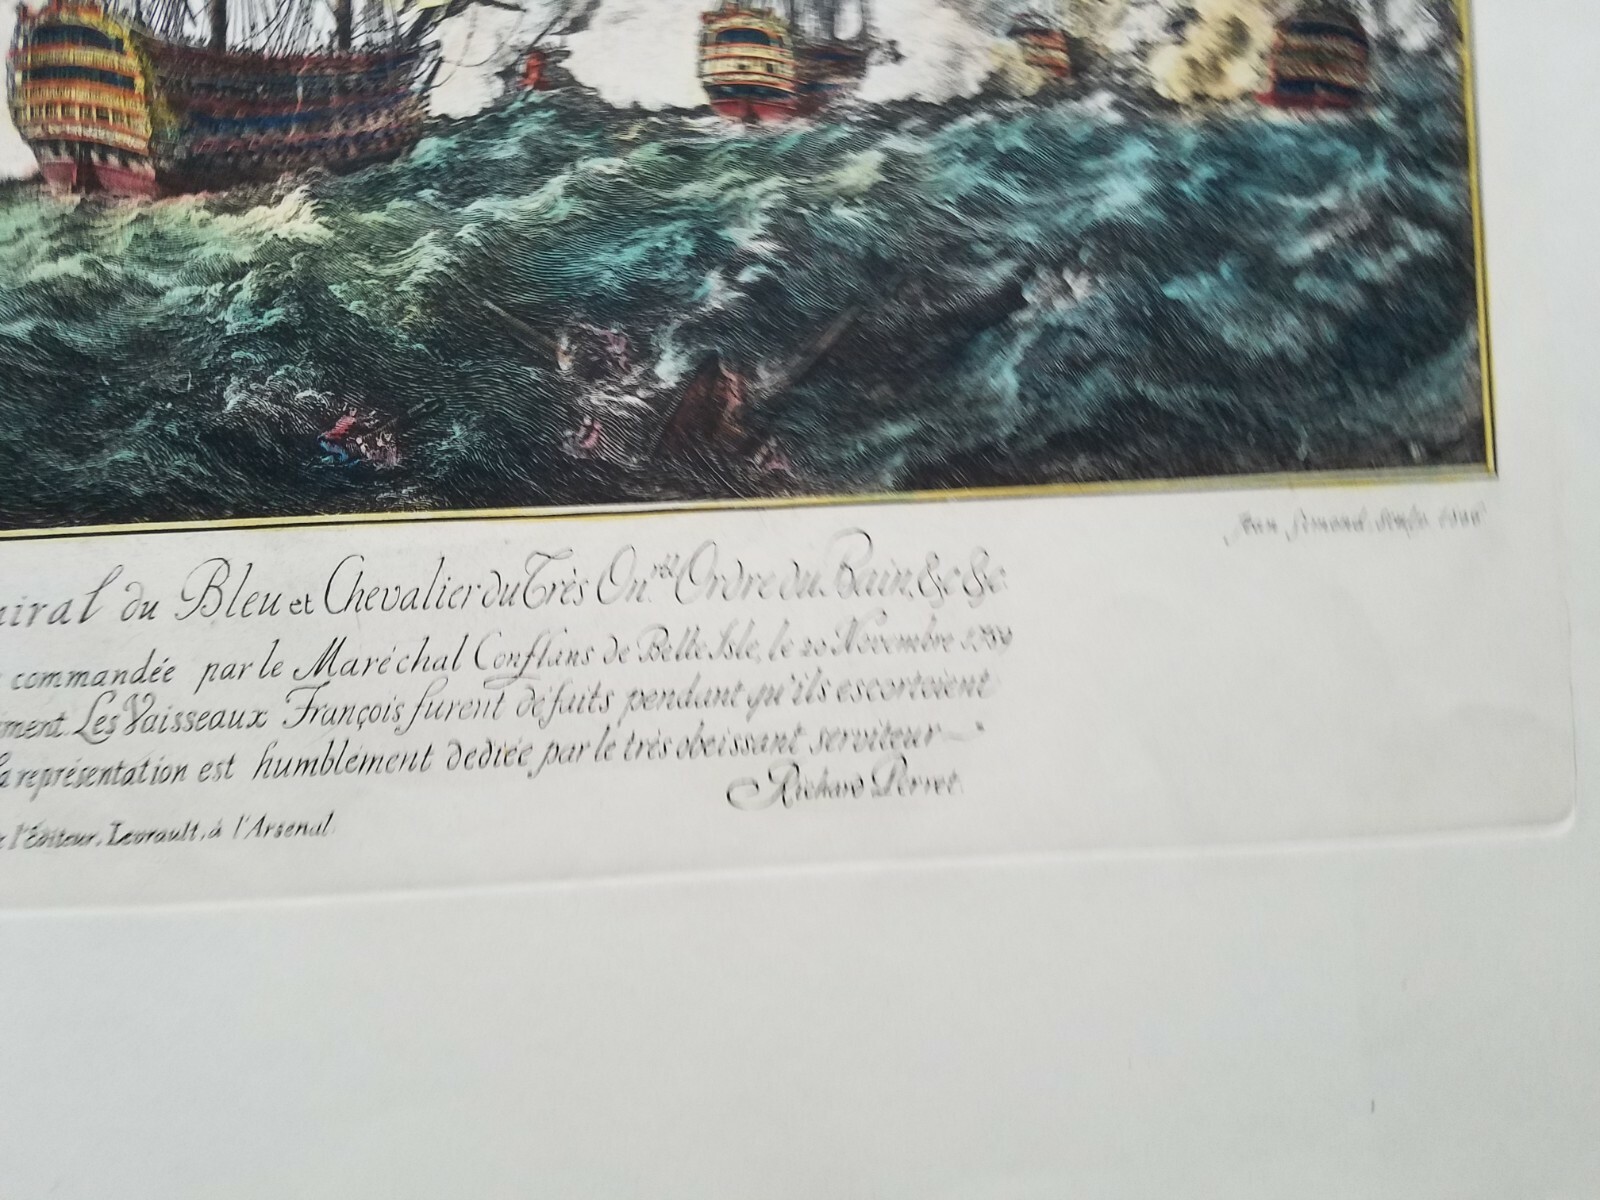 Jean Simond Sculp.
miral du Bleu et Chevalier du Très On.rble Ordre du Bain, &c &c.
commandée par le Maréchal Conflans de Belle Isle, le 20 Novembre 1759
ment. Les Vaisseaux François furent défaits pendant qu'ils escortoient
la représentation est humblement dediée par le très obeissant serviteur
Richard Perret.
l'Éditeur, Levrault, à l'Arsenal.